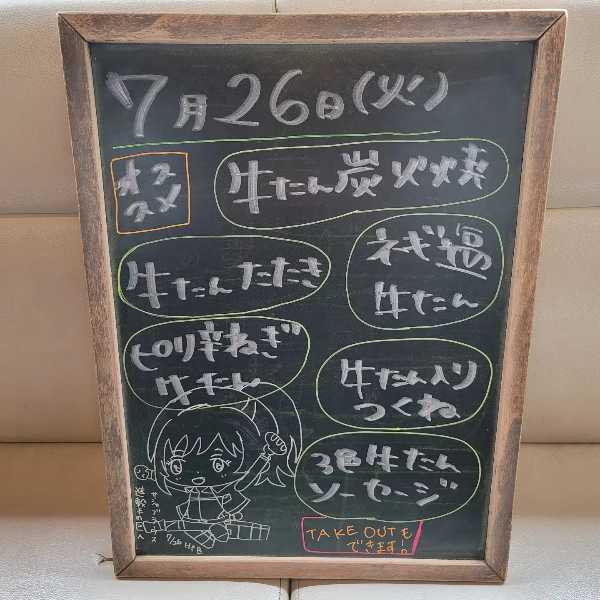 7月26日(火)
オス
スメ
牛たん炭火焼
牛たんたたき
ネギ塩
牛たん
ピリ辛ねぎ
牛たん
牛たん入り
つくね
3色牛たん
ソーセージ
進撃の巨人
サシャブラウス
7/26 HPB
TAKE OUTも
できます!!